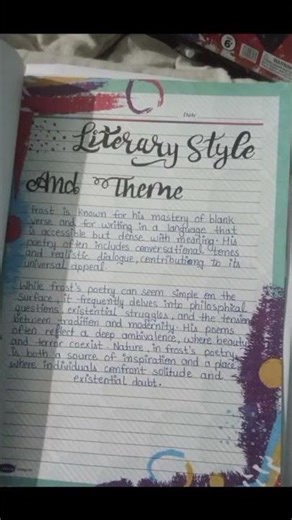 Date
Literary Style
And Theme
Frost is known for his mastery of blank
verse and for writing in a language that
is accessible but dense with meaning. His
poetry often includes conversational tones
and realistic dialogue, contributing to its
universal appeal.
While frost's poetry can seem simple on the
surface, it frequently delves into philosphical
questions, existential struggles, and the tension
between tradition and modernity. His poems
often reflect a deep ambivalence, where beauty
and terror coexist. Nature in frost's poetry
is both a source of inspiration and a place
where individuals confront solitude and
existential doubt.